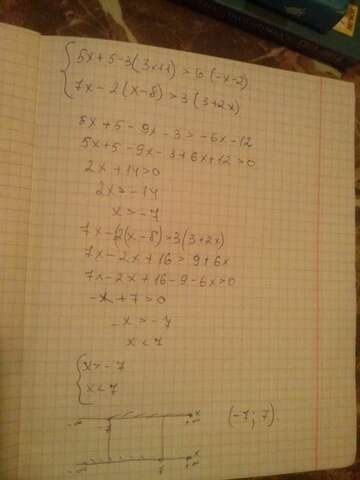 5x+5-3(3x+1)>6(-x-2)
7x-2(x-8)>3(3+2x)
5x+5-9x-3>-6x-12
5x+5-9x-3+6x+12>0
2x+14>0
2x>-14
x>-7
7x-2(x-8)>3(3+2x)
7x-2x+16>9+6x
7x-2x+16-9-6x>0
-x+7>0
-x>-7
x<7
x>-7
x<7
(-7; 7).